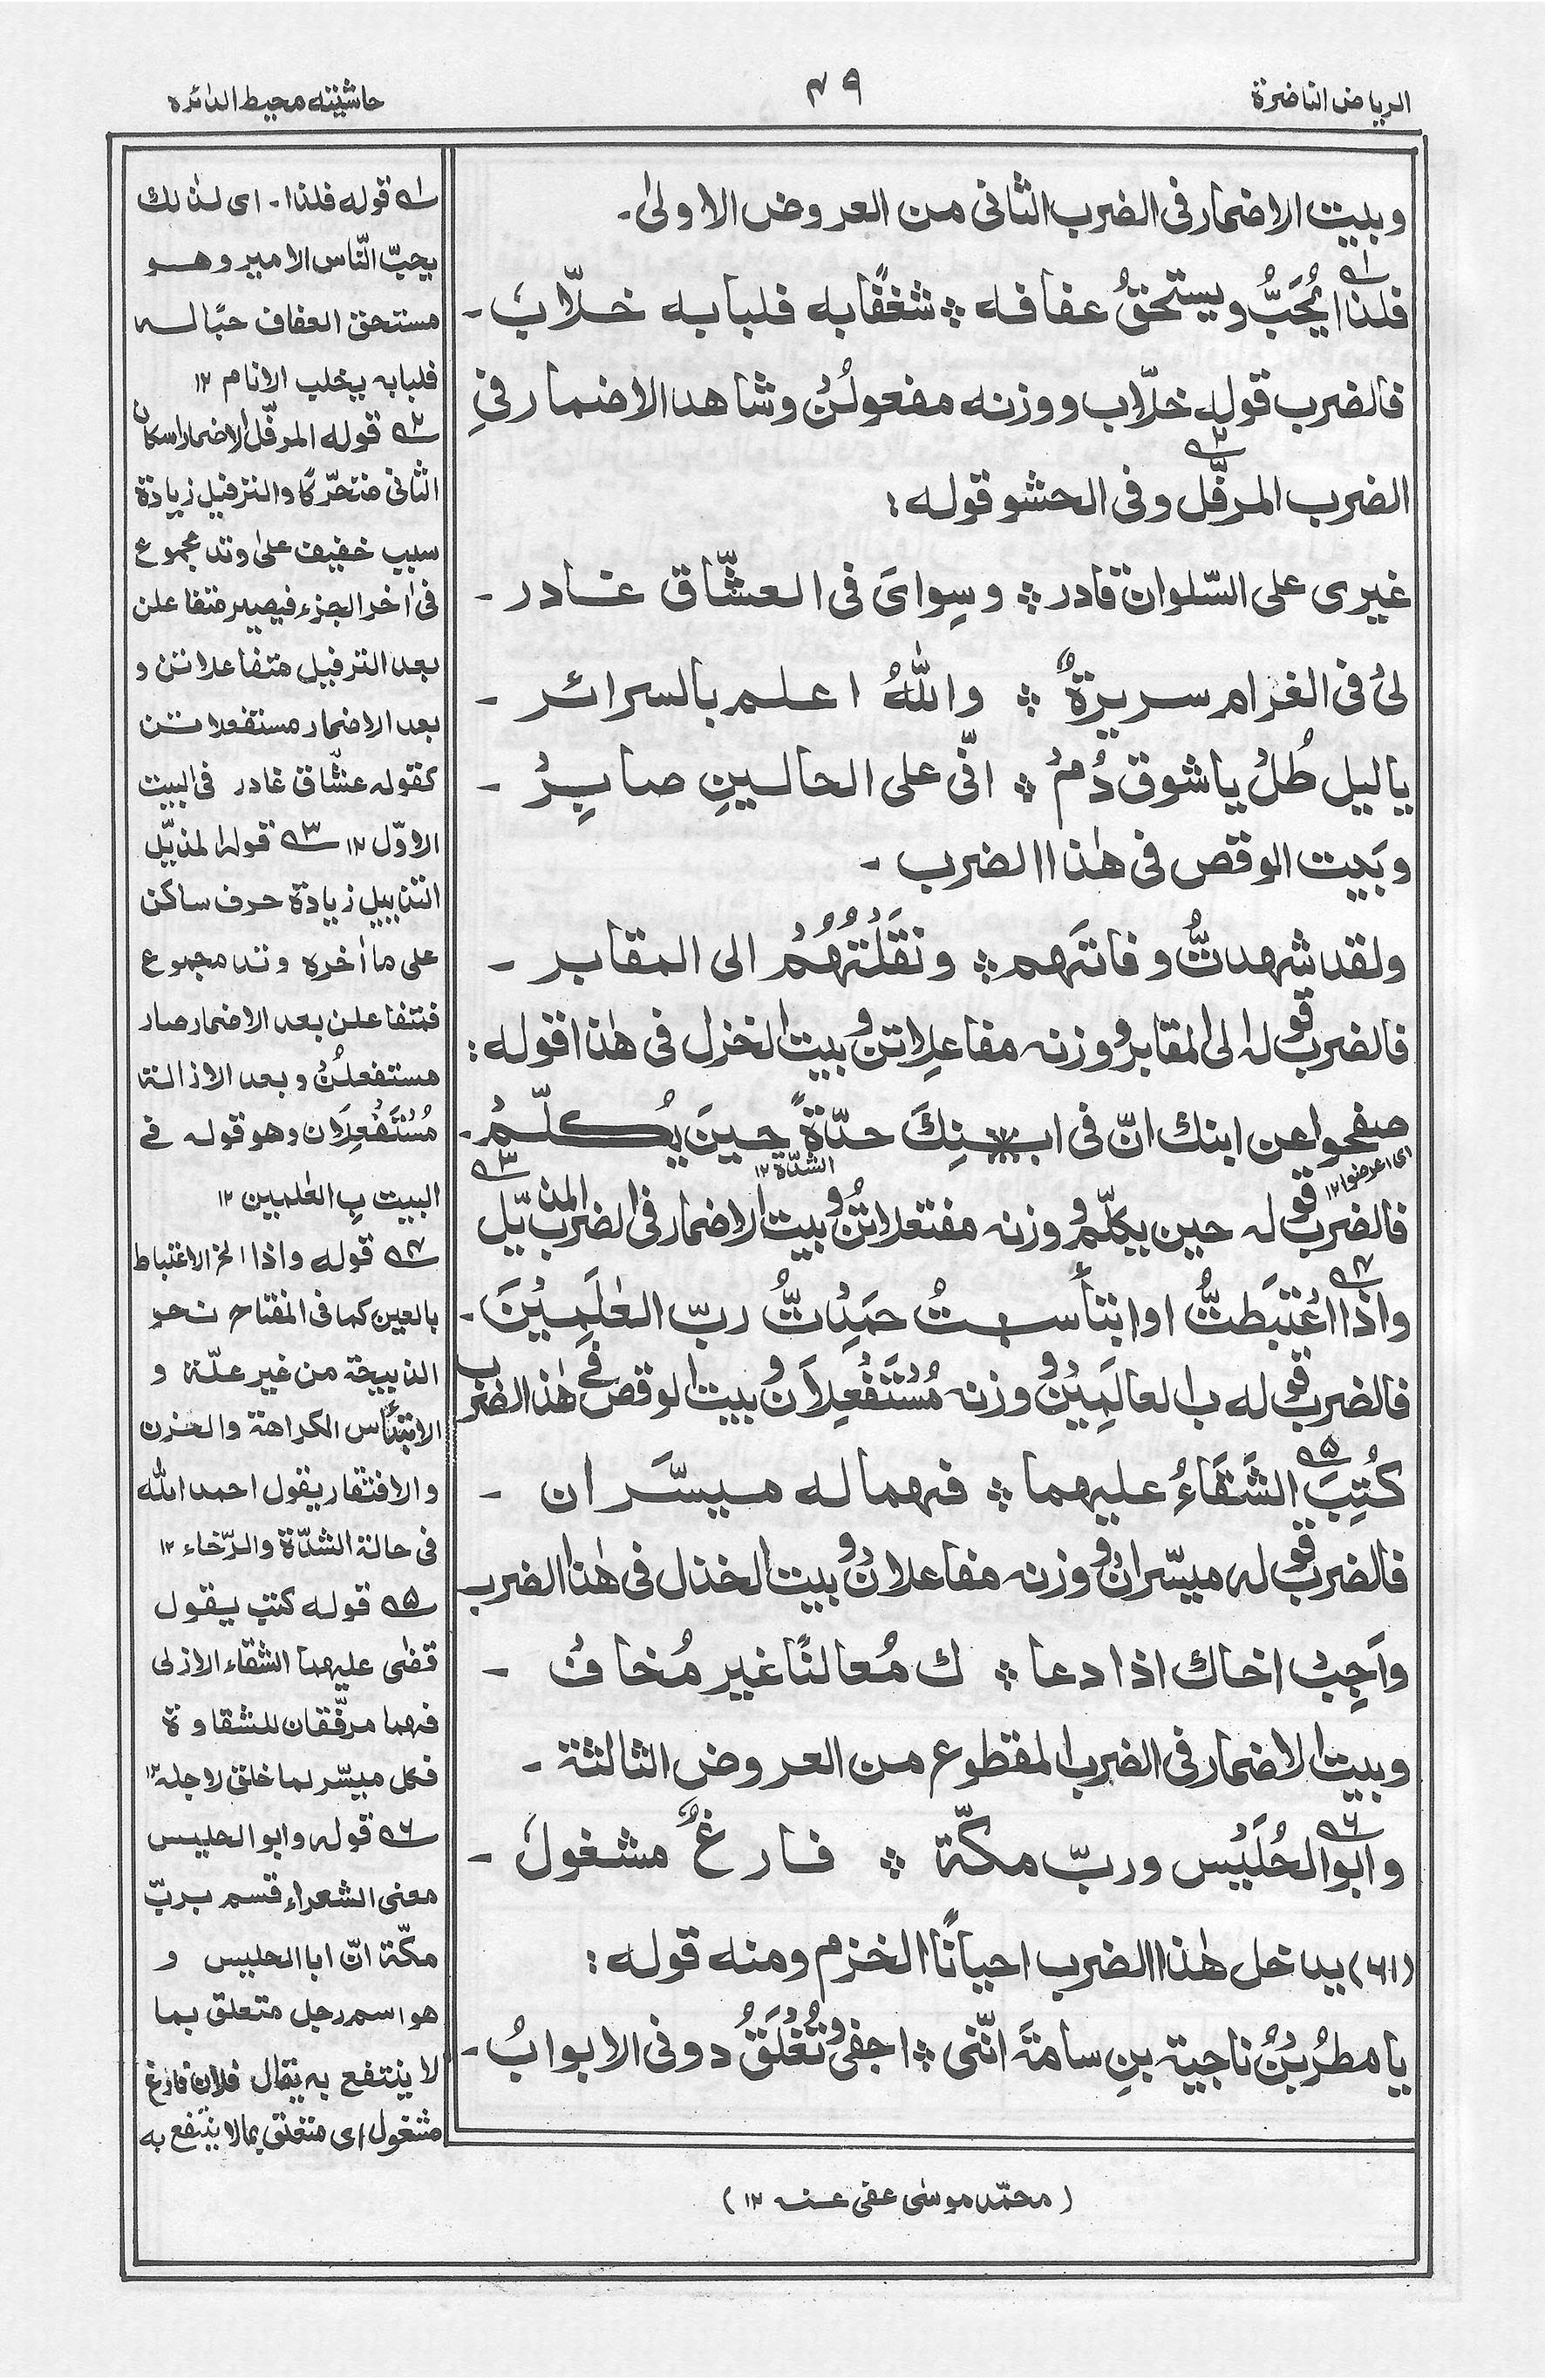 الرياض الناضرة
٤٩
حاشية محيط الدائره
وبيت الاضمار فى الضرب الثانى من العروض الاولىٰ۔
فلذا يُحَبُّ ويستحقُ عفافه ※ شغفًابه فلبابه خلّابٗ ۔
فالضرب قوله خلّاب ووزنه مفعولُنْ وشاهد الاضمار فى
الضرب المرفَّل وفى الحشو قوله :
غيرى على السّلوان قادر ※ وسِواىَ فى العشّاق غادر ۔
لىْ فى الغرام سريرةٌ ※ واللّٰهُ اعلم بالسرائر ۔
ياليل طُلْ ياشوق دُمْ ※ انّى على الحالينِ صابِرْ ۔
وبَيت الوقص فى هٰذا الضرب ۔
ولقد شهدتُّ وفاتَهم ※ ونَقَلْتُهُمْ الى المقابر ۔
فالضرب قوله الى المقابر ووزنه مفاعلاتن وبيت الخزل فى هٰذا قوله :
صفحوا عن ابنك انّ فى ابـ ※ ـنِكَ حدّةً حينَ يُكلّمْ ۔
اى اعرضوا ١٢
الشدّة ١٢
فالضرب قوله حين يكلّم ووزنه مفتعلاتُنْ وبيت الاضمار فى الضرب المذيّل
واذا اغْتَبَطتُّ اوابتأستُ حَمِدْتُّ ربّ العٰلَمِيْنَ ۔
فالضرب قوله ب العالَمِيْنْ ووزنه مُسْتَفْعِلَانْ وبيت الوقص فى هٰذا الضرب
كُتِبَ الشَّقَاءُ عليهما ※ فهما له ميسَّران ۔
فالضرب قوله ميسّرانْ ووزنه مفاعلانْ وبيت الخذل فى هٰذا الضرب
واَجِبْ اخاك اذا دعا ※ ك مُعالنًا غير مُخافْ ۔
وبيت الاضمار فى الضرب المقطوع من العروض الثالثة ۔
وابوالحُلَيْس وربّ مكّة ※ فارغٌ مشغولٗ ۔
(٦١) يداخل هٰذا الضرب احيانًا الخزم ومنه قوله :
يا مطرُ بْنُ ناجية بنِ سامةَ انّنى ※ اجفىٰ وتُغْلَقُ دونى الابوابُ ۔
١ قوله فلذا۔ اى لذالك
يحبّ النّاس الامير وهو
مستحق العفاف حبًا له
فلبابه يخلب الانام ١٢
٢ قوله المرفّل الاضمار اسكان
الثانى متحرّكا والترفيل زيادة
سبب خفيف علىٰ وتد مجموع
فى اٰخر الجزء فيصير متفاعلن
بعد الترفيل متفاعلاتن و
بعد الاضمار مستفعلاتن
كقوله عشّاق غادر فى البيت
الاوّل ١٢ ٣ قوله المذيّل
التذييل زيادة حرف ساكن
على ما اٰخره وتد مجموع
فمتفاعلن بعد الاضمار صار
مستفعلُنْ وبعد الاذالة
مُسْتَفْعِلَان وهو قوله فى
البيت بِ العٰلمين ١٢
٤ قوله واذا الخ الاغتباط
بالعين كما فى المفتاح نحر
الذبيحة من غير علّة و
الابتئاس الكراهة والحزن
والافتقار يقول احمد اللّٰه
فى حالة الشدّة والرّخاء ١٢
٥ قوله كتب يقول
قضٰى عليهما الشقاء الازلى
فهما مرفّقان للشقاوة
فكل ميسّر لما خلق لاجله ١٢
٦ قوله وابو الحليس
معنى الشعراء قسم بربّ
مكّة انّ ابا الحليس و
هو اسم رجل متعلق بما
لا ينتفع به يقال فلان فارغ
مشغول اى متعلق بمالا ينتفع به
(محمّد موسٰى عفى عنه ١٢)